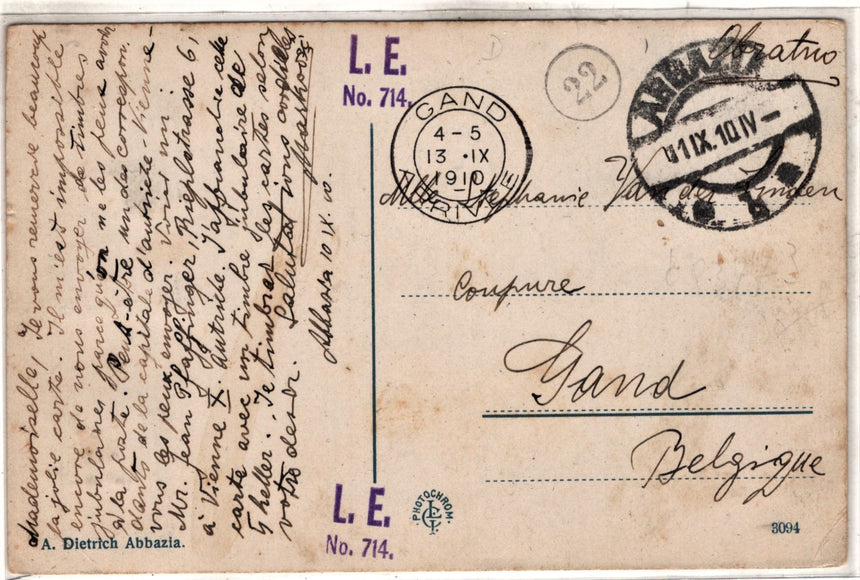 Mademoiselle, Je vous remercie beaucoup
la jolie carte. Il m'est impossible
encore de vous envoyer de timbres
jubulaires parceque on ne les peut avoir
à la poste. Peut-être un des correspon-
dants de la capitale d'autriche-Vienne-
vous les peux envoyer. Voici un
Mr. Jean Pfaffinger, Rieplstrasse 6,
à Vienne X. Autriche. J'affranchie cete
carte avec un timbre jubulaire de
5 heller. Je timbrai les cartes selon
votre desir. Salutations cordiales
Abbazia 10 IX. 10.
A. Dietrich Abbazia.
L. E.
No. 714.
L. E.
No. 714.
PHOTOCHROM
22
GAND
4-5
13 · IX
1910
ARRIVÉE
ABBAZIA
11 IX. 10 IV -
b
Mlle Stephanie Van der Linden
Coupure
Gand
Belgique
3094